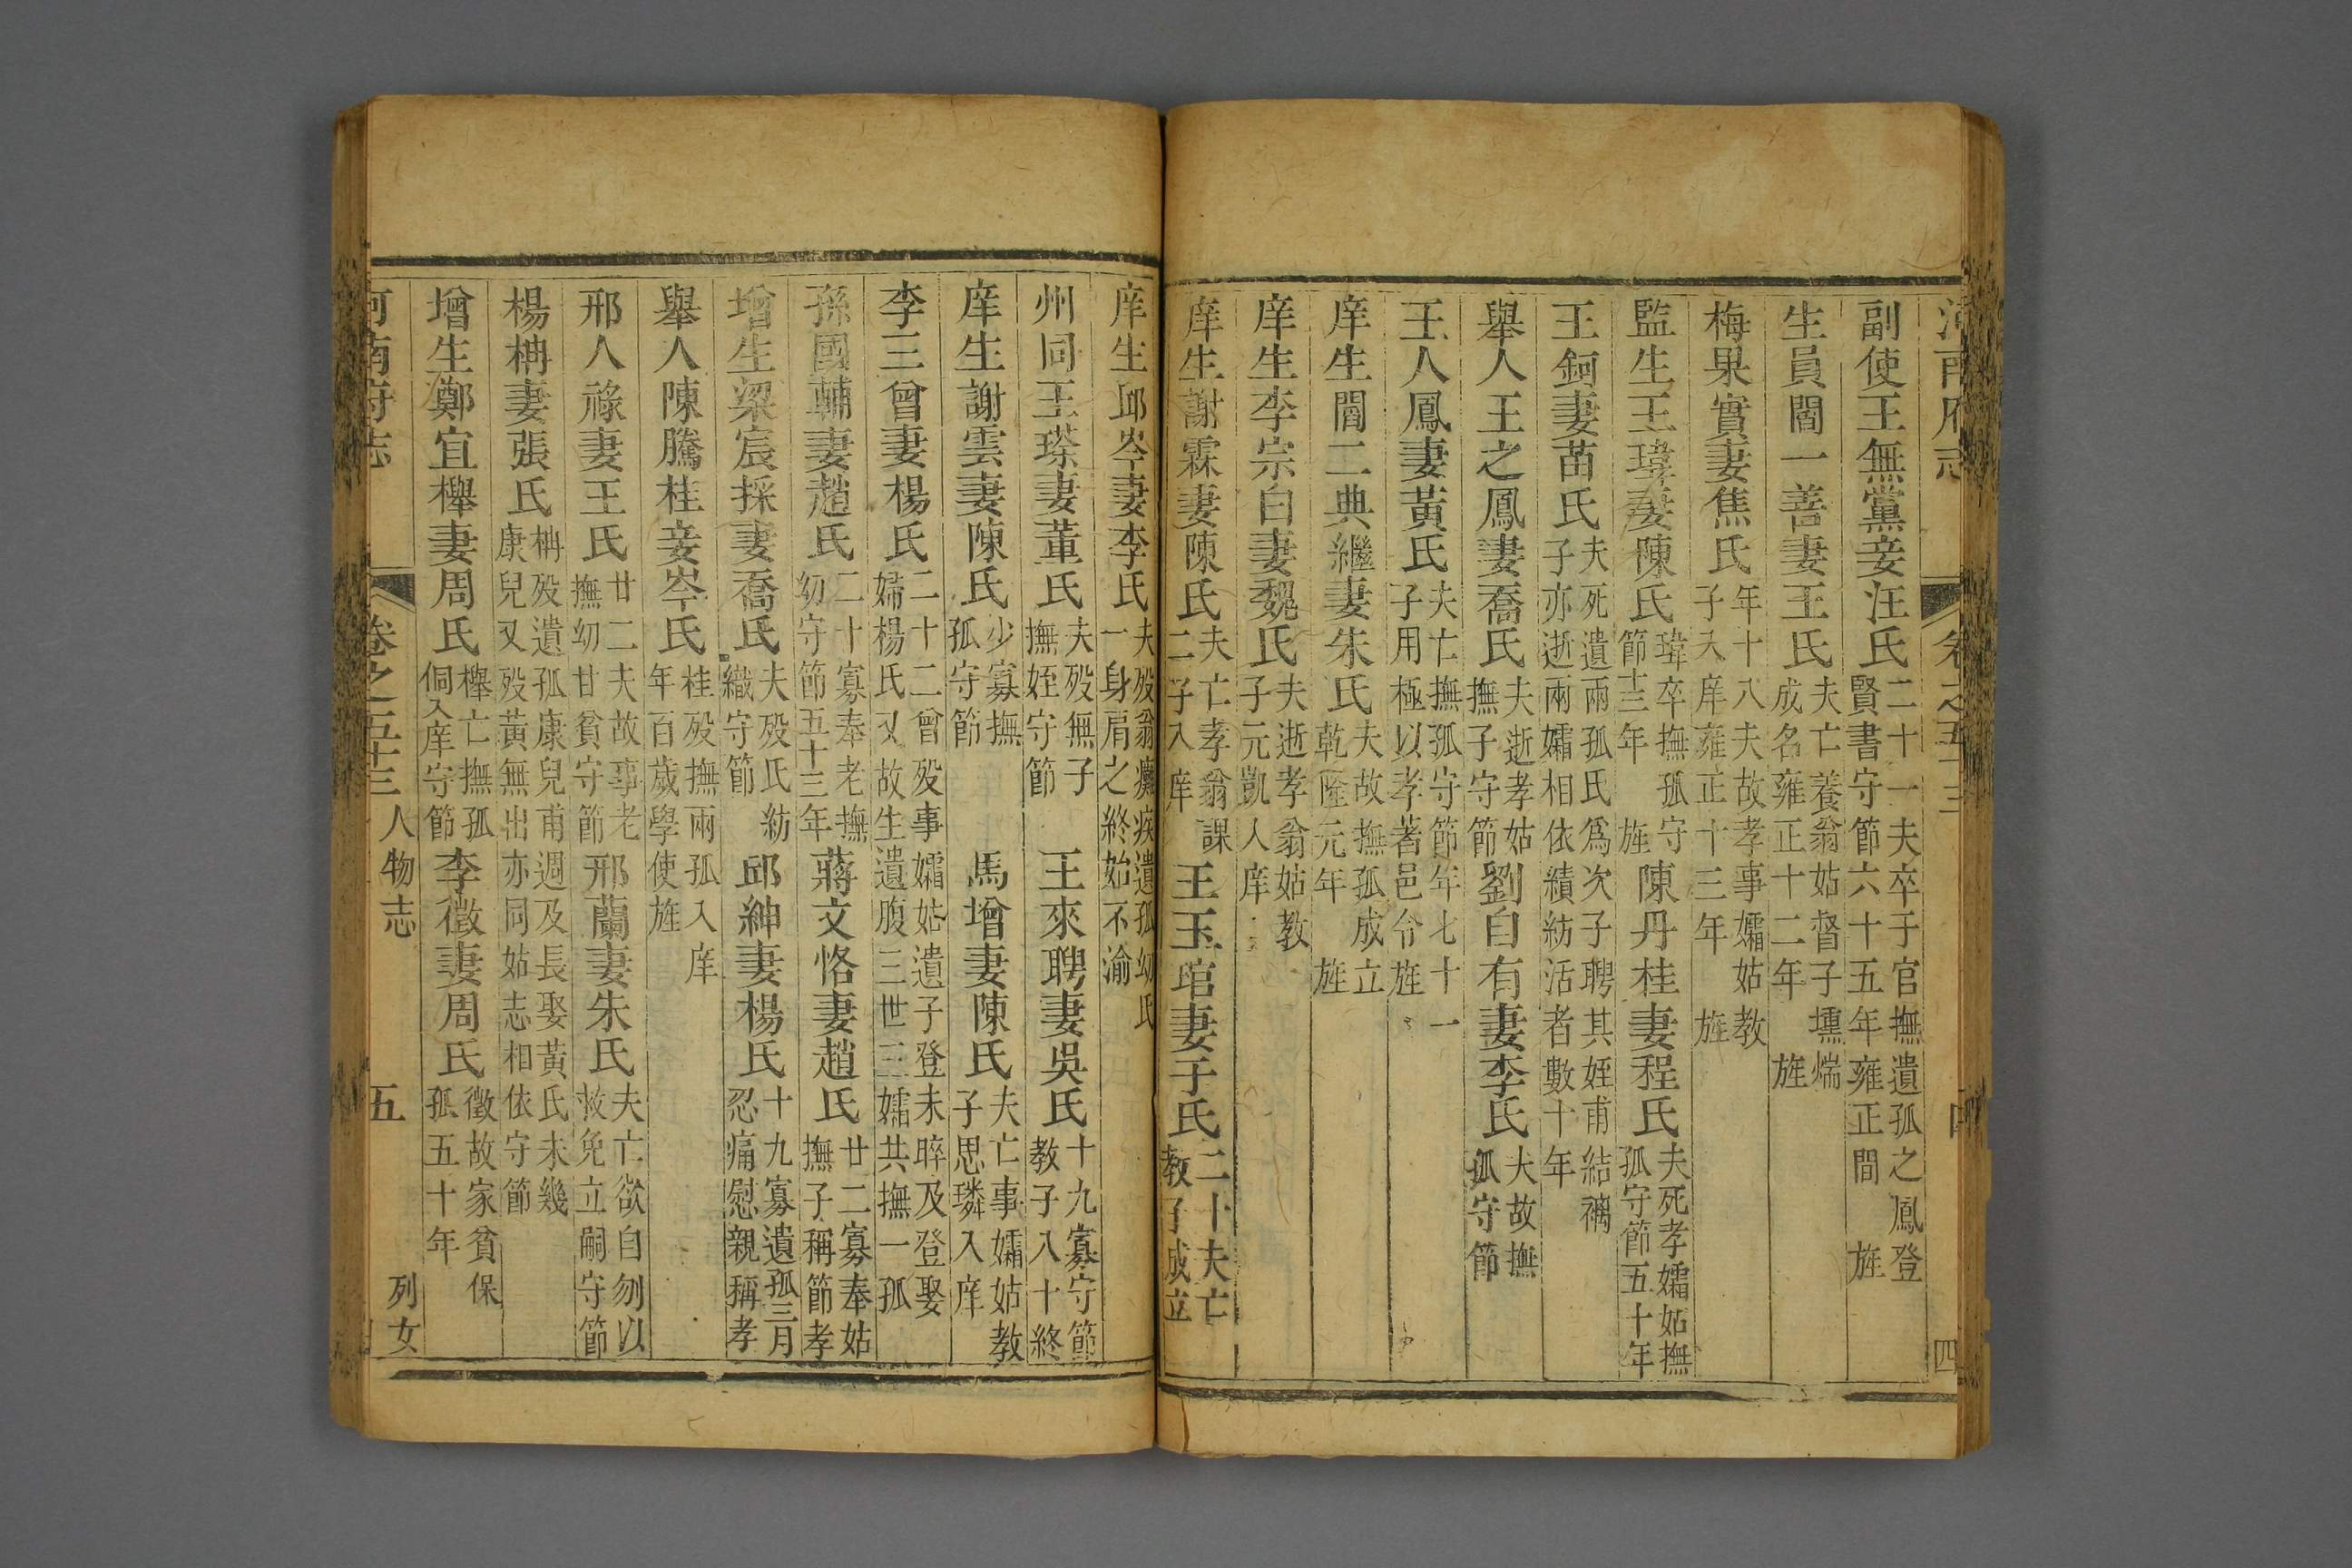 河南府志 卷之五十三 四
副使王無黨妾汪氏二十一夫卒于官撫遺孤之鳳登賢書守節六十五年雍正間旌
生員閻一善妻王氏夫亡養翁姑督子壎煓成名雍正十二年旌
梅果實妻焦氏年十八夫故孝事孀姑教子入庠雍正十三年旌
監生王瑋妻陳氏瑋卒撫孤守節十三年旌 陳丹桂妻程氏夫死孝孀姑撫孤守節五十年
王鈳妻苗氏夫死遺兩孤氏爲次子聘其姪甫結褵子亦逝兩孀相依績紡活者數十年
舉人王之鳳妻喬氏夫逝孝姑撫子守節 劉自有妻李氏夫故撫孤守節
王人鳳妻黃氏夫亡撫孤守節年七十一子用極以孝著邑令旌
庠生閻二典繼妻朱氏夫故撫孤成立乾隆元年旌
庠生李宗白妻魏氏夫逝孝翁姑教子元凱入庠
庠生謝霖妻陳氏夫亡孝翁課二子入庠 王玉琯妻于氏二十夫亡教子成立
庠生邱岑妻李氏夫歿翁癱疾遺孤幼氏一身肩之終始不渝
州同王瑹妻董氏夫歿無子撫姪守節 王來聘妻吳氏十九寡守節教子入十終
庠生謝雲妻陳氏少寡撫孤守節 馬增妻陳氏夫亡事孀姑教子思璘入庠
李三曾妻楊氏二十二曾歿事孀姑遺子登未晬及登娶婦楊氏又故生遺腹三世三孀共撫一孤
孫國輔妻趙氏二十寡奉老撫幼守節五十三年 蔣文恪妻趙氏廿二寡奉姑撫子稱節孝
增生梁宸採妻喬氏夫歿氏紡織守節 邱紳妻楊氏十九寡遺孤三月忍痛慰親稱孝
舉人陳騰桂妾岑氏桂歿撫兩孤入庠年百歲學使旌
邢人祿妻王氏廿二夫故事老撫幼甘貧守節 邢蘭妻朱氏夫亡欲自刎以救免立嗣守節
楊柟妻張氏柟歿遺孤康兒甫週及長娶黃氏未幾康兒又歿黃無出亦同姑志相依守節
增生鄭宜櫸妻周氏櫸亡撫孤侗入庠守節 李徵妻周氏徵故家貧保孤五十年
河南府志 卷之五十三 人物志 五 列女